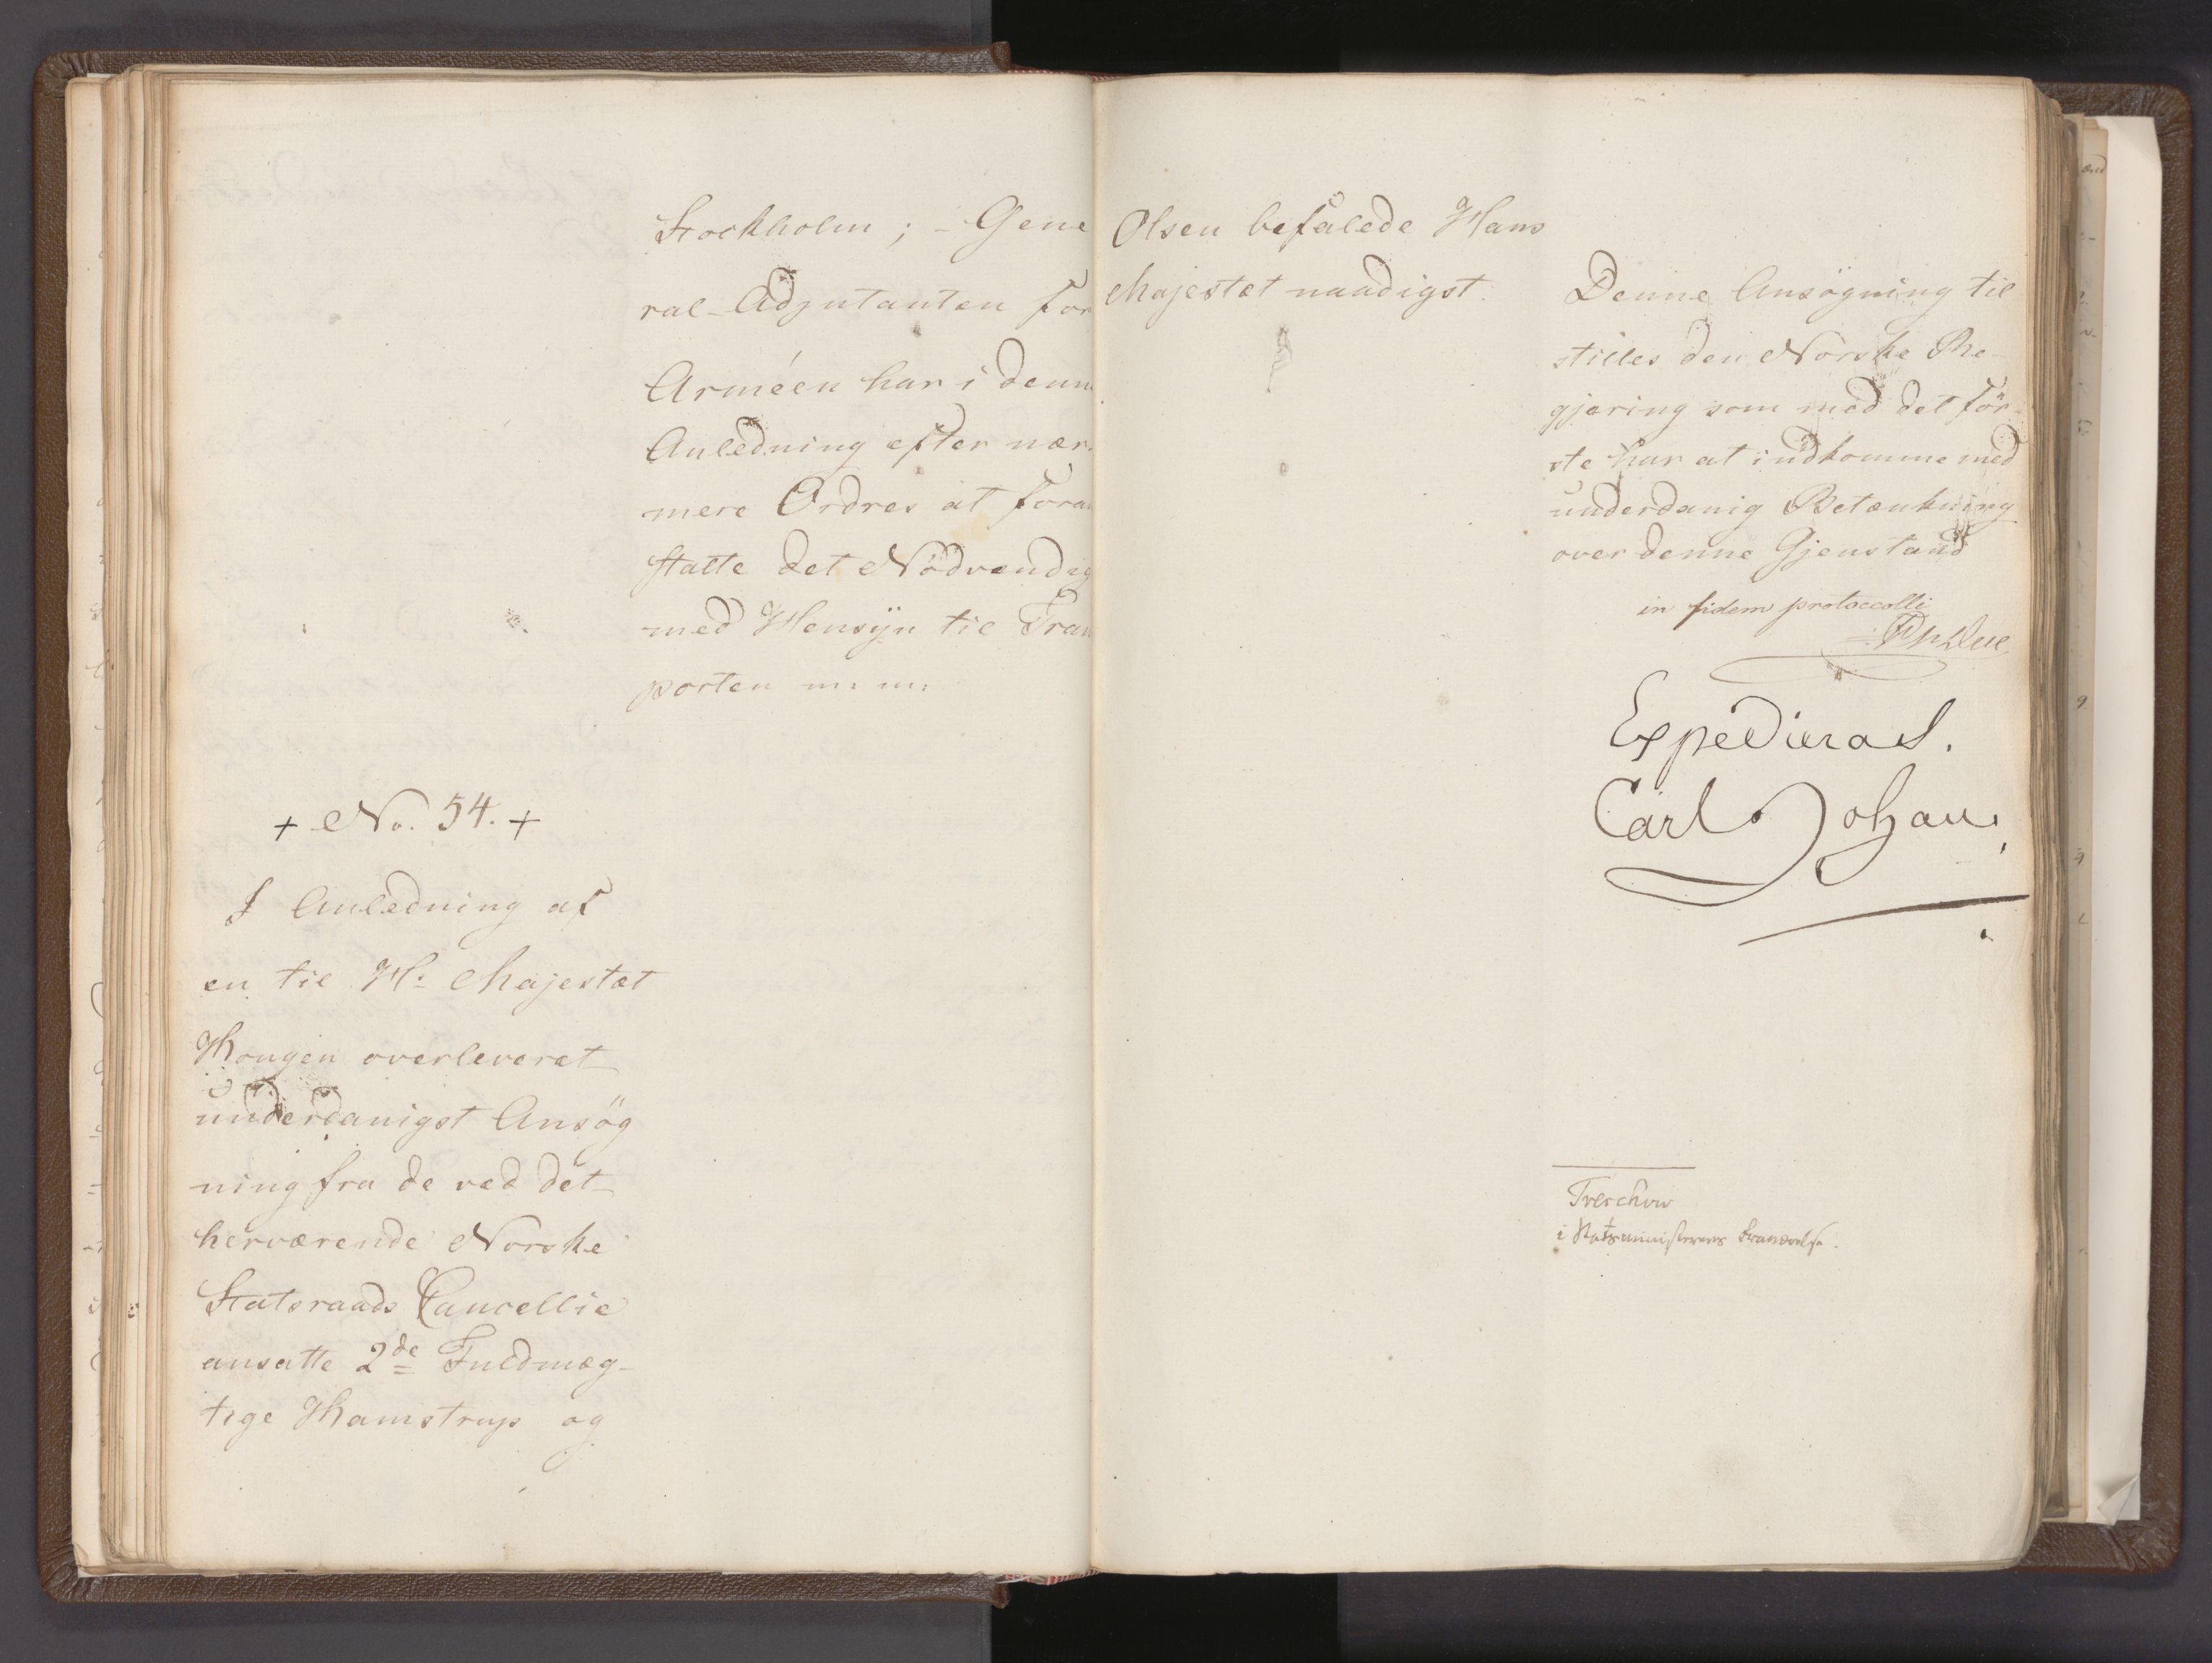 Stockholm; - Gene
ral-Adjutanten for
Arméen har i denn
Anledning efter nær
mere Ordres at foran
statte det Nödvendig
med Hensÿn til Tran
porten m: m:
+ No. 54. +
I Anledning af
en til H: Majestæt
Kongen overleveret
underdanigst Ansög
ning fra de ved det
herværende Norske
Statsraads Cancellie
ansatte 2de Fuldmæg-
tige Hamstrup og
Olsen befalede Hans
Majestæt naadigst.
Denne Ansögning til
stilles den Norske Re-
gjering som med det för
ste har at indkomme med
underdanig Betænkning
over denne Gjenstand
in fidem protocolli
Due
Expedieras.
Carl Johan.
Treschow
i Statsministerens Fraværelse.